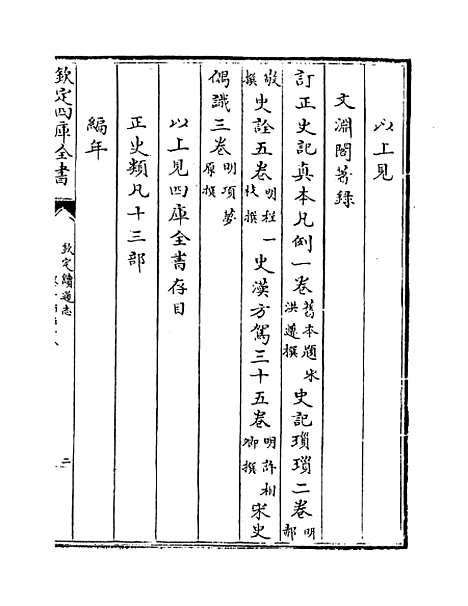 以上見
文淵閣著録
訂正史記真本凡例一卷舊本題宋洪遵撰史記瑣瑣二卷明郝
敬撰史詮五卷明程一枝撰史漢方駕三十五卷明許相卿撰宋史
偶識三卷明項夢原撰
以上見四庫全書存目
正史類凡十三部
編年
欽定四庫全書
欽定續通志
二